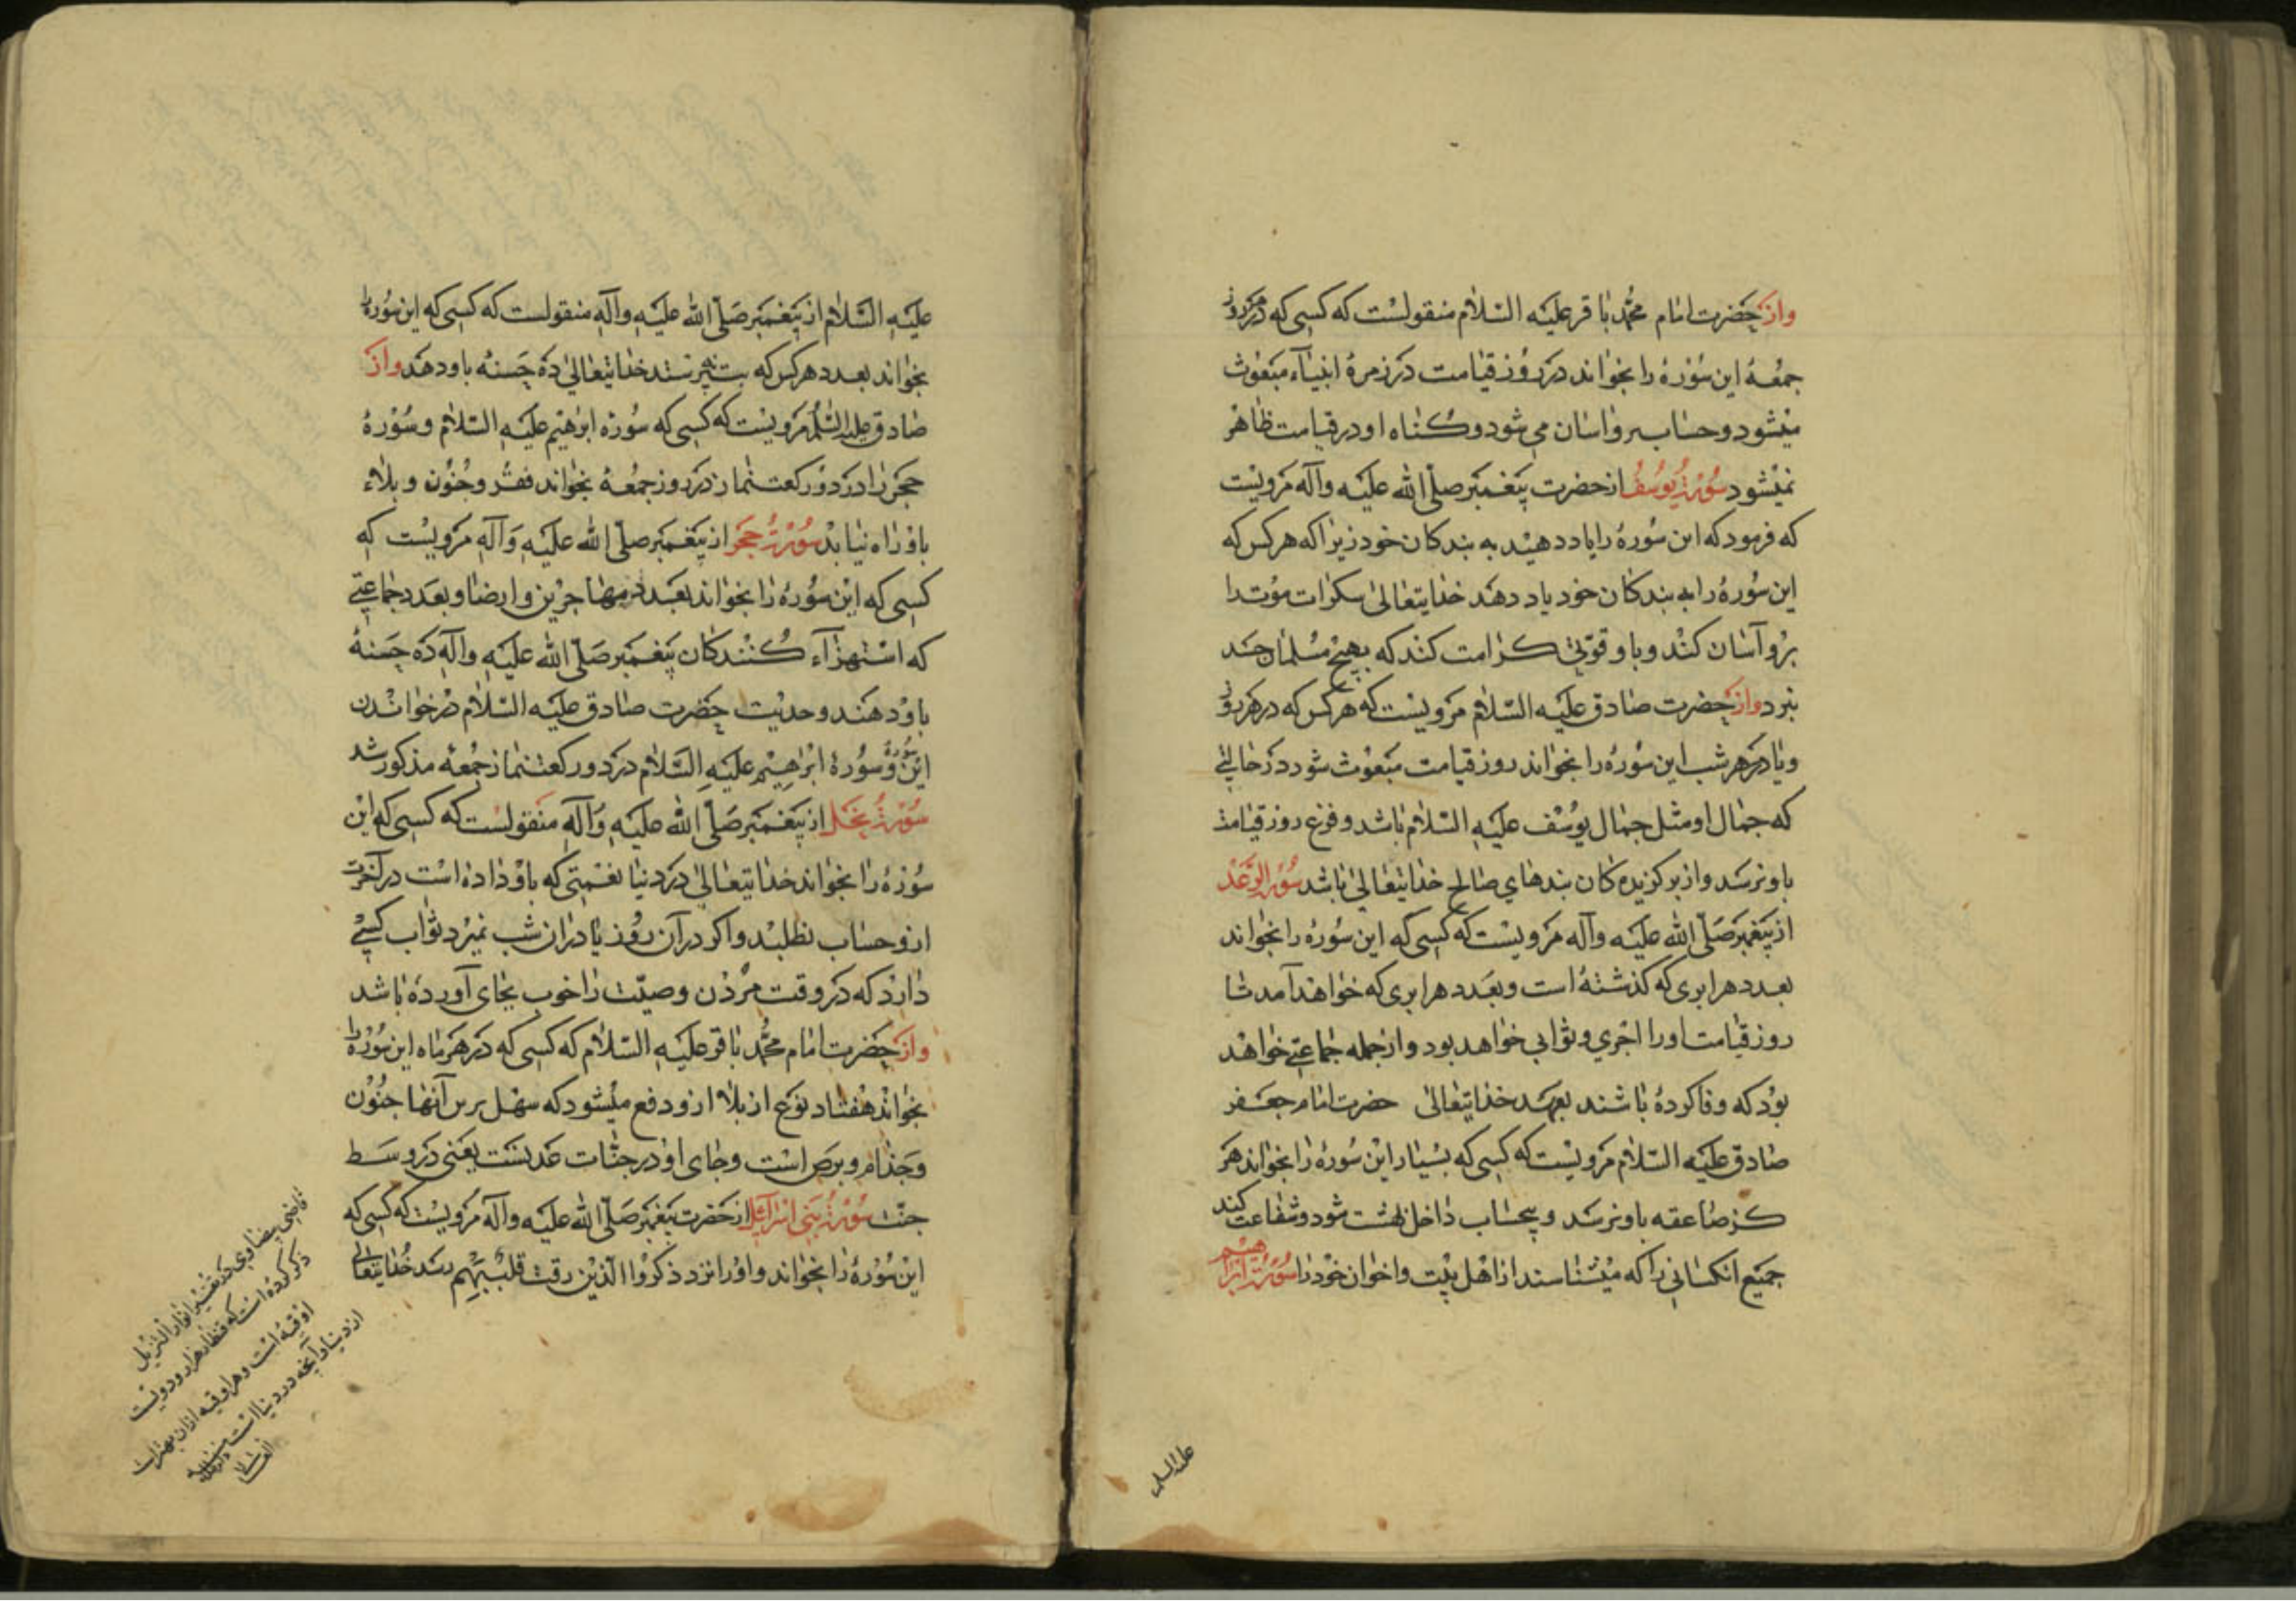 واز حضرت امام محمد باقر علیه السلام منقولست که کسی که در روز
جمعه این سوره را بخواند در روز قیامت در زمرهٔ انبیاء مبعوث
میشود و حساب بر واسان می شود و کناه او در قیامت ظاهر
نمیشود سورة یوسف از حضرت پیغمبر صلی الله علیه وآله مرویست
که فرمود که این سوره را یاد دهید به بندکان خود زیرا که هر کس که
این سوره را به بندکان خود یاد دهد خدایتعالی سکرات موت را
برو آسان کند و باو قوتی کرامت کند که بهیچ مسلمان حسد
نبرد واز حضرت صادق علیه السلام مرویست که هر کس که در هر روز
ویا در هر شب این سوره را بخواند روز قیامت مبعوث شود در حالتی
که جمال او مثل جمال یوسف علیه السلام باشد و فزع روز قیامت
باو نرسد واز برکزیده کان بندهای صالح خدایتعالی باشد سورة الرعد
از پیغمبر صلی الله علیه وآله مرویست که کسی که این سوره را بخواند
بعدد هر ابری که کذشته است وبعدد هر ابری که خواهد آمد تا
روز قیامت اورا اجری وثوابی خواهد بود واز جمله جماعتی خواهد
بود که وفا کرده باشند بعهد خدایتعالی حضرت امام جعفر
صادق علیه السلام مرویست که کسی که بسیار این سوره را بخواند هر
کز صاعقه باو نرسد و بیحساب داخل بهشت شود و شفاعت کند
جمیع انکسانی را که میشناسند از اهل بیت واخوان خود را سورة ابراهیم
علیه السلام
علیه السلام از پیغمبر صلی الله علیه وآله منقولست که کسی که این سوره را
بخواند بعدد هر کس که بت پرستد خدایتعالی ده حسنه باو دهد واز
صادق علیه السلام مرویست که کسی که سورة ابرهیم علیه السلام وسورهٔ
حجر را در دو رکعت نماز در روز جمعه بخواند فقر وجنون وبلاء
باو راه نیابد سورة حجر از پیغمبر صلی الله علیه وآله مرویست که
کسی که این سوره را بخواند بعدد مهاجرین وانصار وبعدد جماعتی
که استهزاء کنندکان پیغمبر صلی الله علیه وآله ده حسنه
باو دهند وحدیث حضرت صادق علیه السلام در خواندن
این سوره وسورهٔ ابرهیم علیه السلام در دو رکعت نماز جمعه مذکور شد
سورة نحل از پیغمبر صلی الله علیه وآله منقولست که کسی که این
سوره را بخواند خدایتعالی در دنیا نعمتی که باو داده است در آخرت
ازو حساب نطلبد واکر در آن روز یا در ان شب بمیرد ثواب کسی
دارد که در وقت مردن وصیت را خوب بجای آورده باشد
واز حضرت امام محمد باقر علیه السلام که کسی که در هر ماه این سوره را
بخواند هفتاد نوع از بلا ازو دفع میشود که سهل برین آنها جنون
وجذام وبرص است وجای او در جنات عدنست یعنی در وسط
جنت سورة بنی اسرائیل از حضرت پیغمبر صلی الله علیه وآله مرویست که کسی که
این سوره را بخواند واورا نزد ذکروا الذین رقت قلبهم رسد خدایتعالی
قاضی بیضاوی در تفسیر انوار التنزیل
ذکر کرده است که قنطار هزار ودویست
اوقیه است وهر اوقیه ازان بهتر است
از دنیا وآنچه در دنیا است